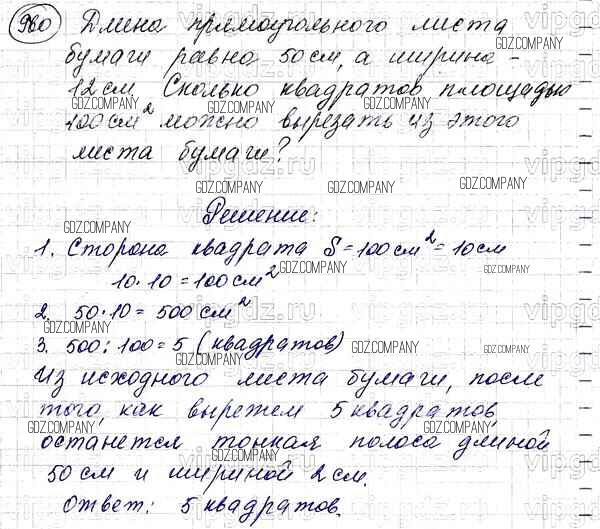 960 Длина прямоугольного листа
бумаги равна 50 см, а ширина -
12 см. Сколько квадратов площадью
100 см² можно вырезать из этого
листа бумаги?
Решение:
1. Сторона квадрата S = 100 см² = 10 см
10 · 10 = 100 см²
2. 50 · 10 = 500 см²
3. 500 : 100 = 5 (квадратов)
Из исходного листа бумаги, после
того, как вырежем 5 квадратов,
останется тонкая полоса длиной
50 см и шириной 2 см.
Ответ: 5 квадратов.